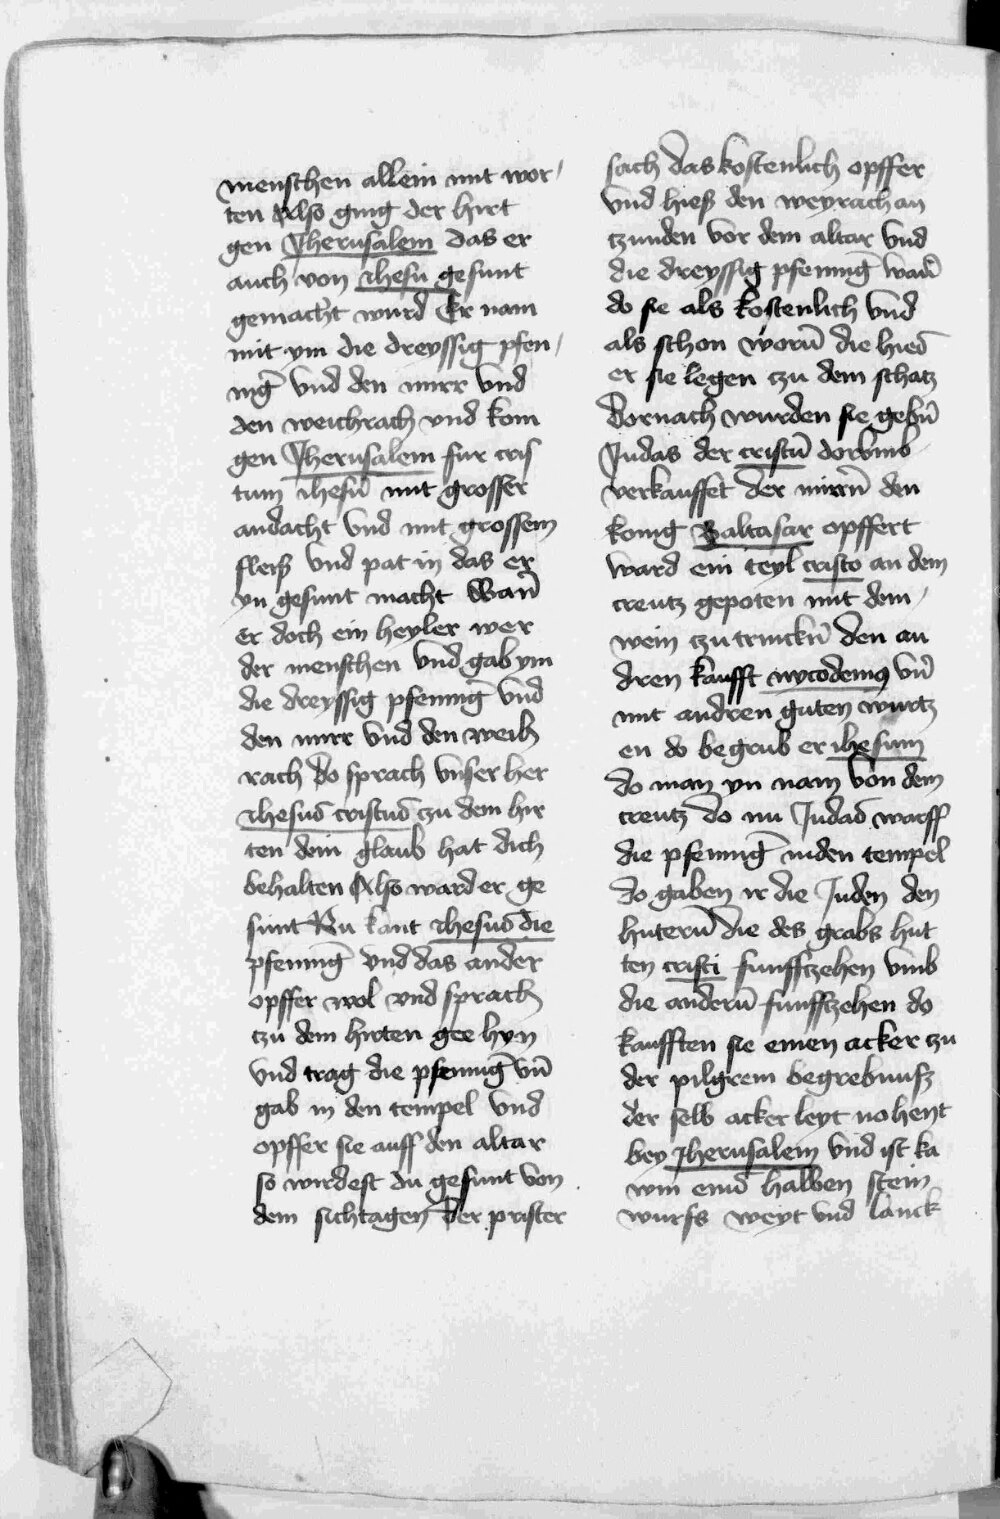 menschen allein mit wor⸗
ten Also ging der hirt
gen Jherusalem das er
auch von Jhesu gesunt
gemacht wurd Er nam
mit ym die dreyssig pfen⸗
niḡ vnd den mirr vnd
den weichrach vnd kom
gen Jherusalem fur cris
tum ihesū mit grosser
andacht vnd mit grossem
fleiß vnd pat in das er
yn gesunt macht Wan̄
er doch ein heyler wer
der menschen vnd gab ym
die dreyssig pfenniḡ vnd
den mirr vnd den weih
rach do sprach vnser her
Jhesus cristus czu dem hir
ten dein glaub hat dich
behalten Also ward er ge
sunt Nu kant Jhesus die
pfenniḡ vnd das ander
opffer wol vnd sprach
czu dem hirten gee hyn
vnd trag die pfenniḡ vn̄
gab in den tempel vnd
opffer sie auff den altar
so wirdest du gesunt von
dem sichtagen Der prister
sach das kostenlich opffer
vnd hieß den weyrach an
czunden vor dem altar vnd
die dreyssig pfenniḡ wan̄
do sie als kostenlich vnd
als schon worn̄ die hieß
er sie legen czu dem schatz
Dornach wurden sie gebn̄
Judas der cristū dorvmb
verkauffet Der mirrn̄ den
konig Baltasar opffert
ward ein teyl cristo an dem
creutz gepoten mit dem⸗
wein czu trinckn̄ den an
dren kaufft nycodemus vn̄
mit andren guten wurtz
en do begrub er ihesum
do man yn nam von dem
creutz do nu Judas warff
die pfenniḡ inden tempel
do gaben ir die Juden den
hutern̄ die des grabs hut
ten cristi funffczehen vmb
die andern̄ funffczehen do
kaufften sie einen acker czu
der pilgrem begrebnusz
der selb acker leyt nohent
bey Jherusalem vnd ist ka
wm eins halben stein
wurfs weyt vnd lanck